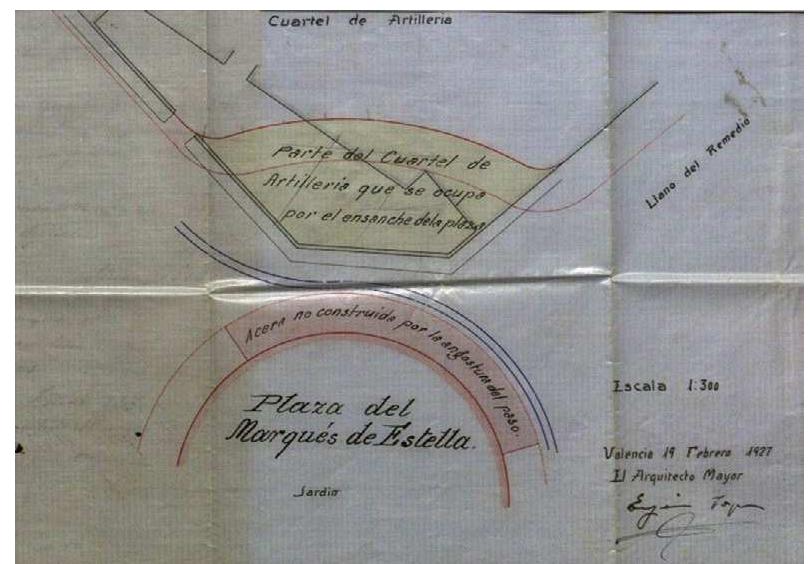 Cuartel de Artilleria
Parte del Cuartel de
Artilleria que se ocupa
por el ensanche de la plaza
Llano del Remedio
Acera no construida por la angostura del paso.
Plaza del
Marqués de Estella.
Jardin
Escala 1:300
Valencia 19 Febrero 1927
El Arquitecto Mayor